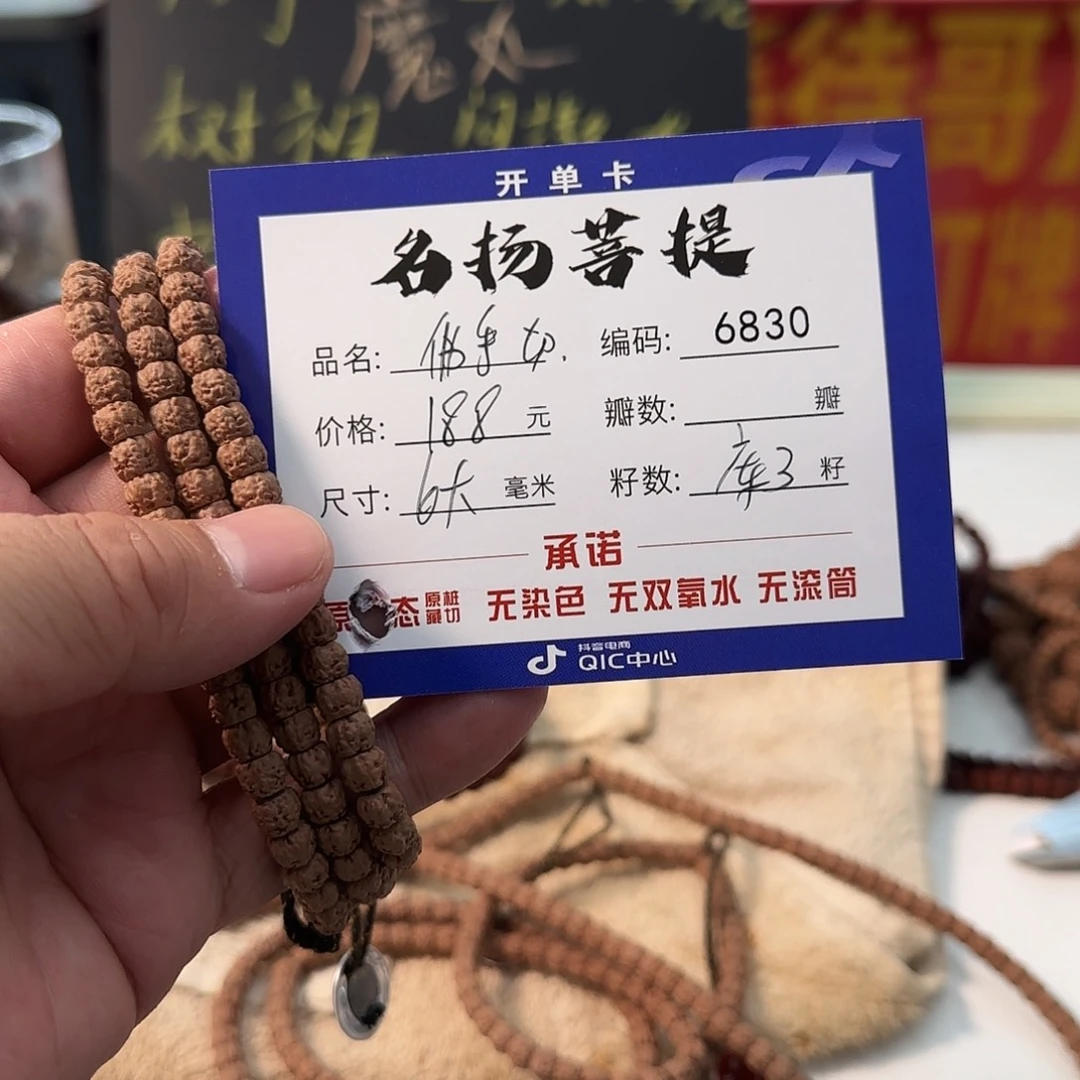 魔丸
树祖
待哥
牌
开单卡
名扬菩提
品名: 编码: 6830
价格: 188 元 瓣数: 瓣
尺寸: 6大 毫米 籽数: 库3 籽
承诺
原 态 原桩藏切 无染色 无双氧水 无滚筒
抖音电商
QIC中心